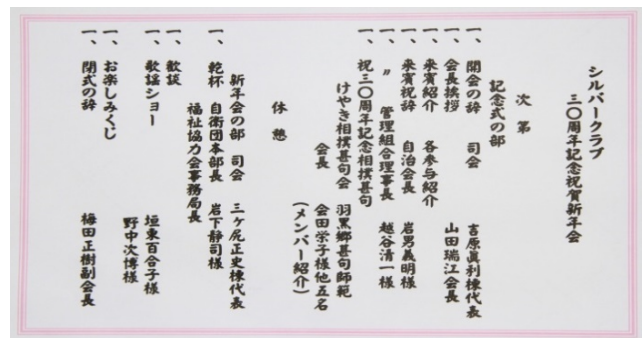 シルバークラブ
三〇周年記念祝賀新年会
次 第
記念式の部
一、開会の辞 司会 吉原眞利棟代表
一、会長挨拶 山田瑞江会長
一、来賓紹介 各参与紹介
一、来賓祝辞 自治会長 岩男義明様
〃 管理組合理事長 越谷清一様
一、祝三〇周年記念相撲甚句
けやき相撲甚句会 羽黒郷甚句師範
会長 会田栄子様他五名
(メンバー紹介)
休 憩
新年会の部 司会 三ケ尻正史棟代表
一、乾杯 自衛団本部長 岩下静司様
福祉協力会事務局長
一、歓談 垣東百合子様
一、歌謡ショー 野中次博様
一、お楽しみくじ
一、閉式の辞 梅田正樹副会長